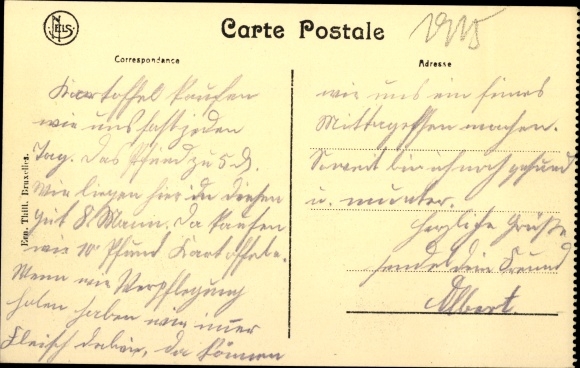 NELS
Carte Postale
1915
Correspondance
Adresse
Ern. Thill. Bruxelles.
Kartoffel kaufen
wir uns fast jeden
Tag. Das Pfund zu 5 d.
Wir liegen hier in diesen
Gut 8. Mann. Da kaufen
wir 10 Pfund Kartoffeln.
Wenn wir Verpflegung
holen haben wir imer
Fleisch dabei, da können
wir uns ein feines
Mittagessen machen.
Soweit bin ich noch gesund
u. munter.
Herzliche Grüße
sendet dein Freund
Albert.